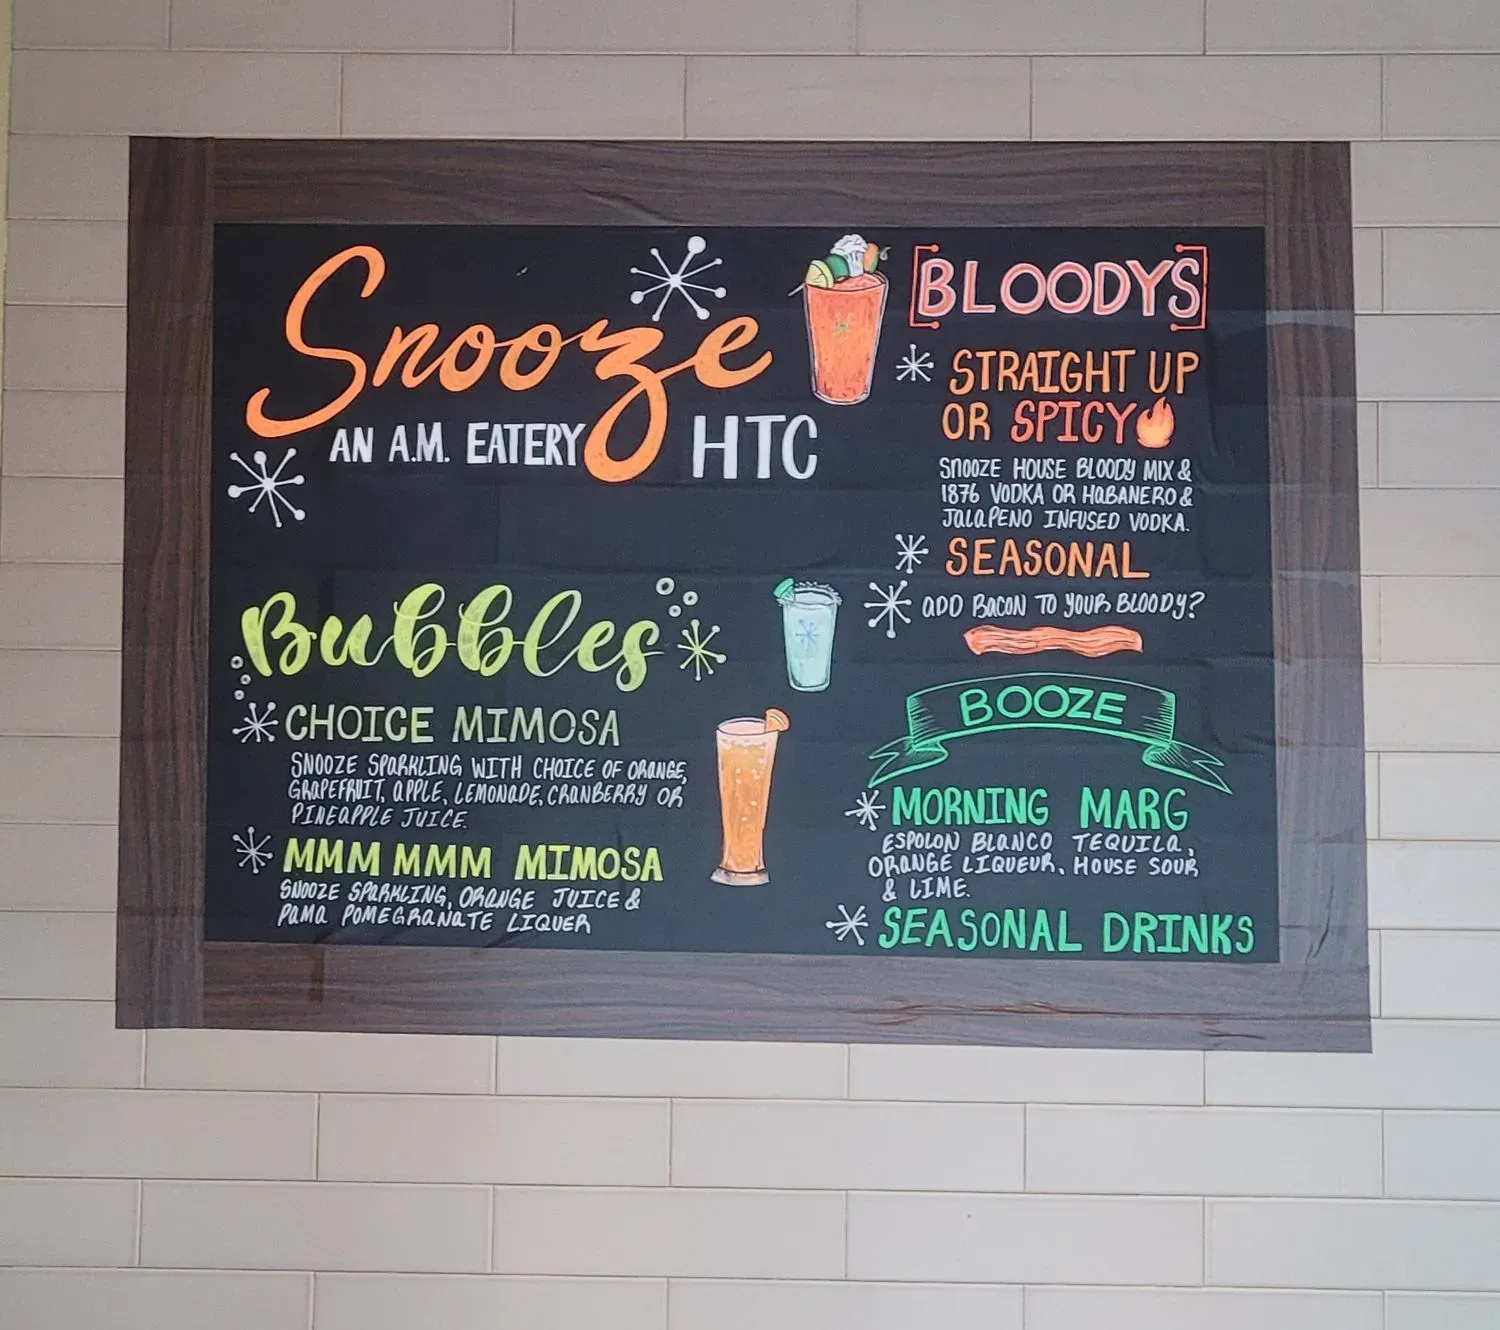 Snooze
AN A.M. EATERY HTC
Bubbles
CHOICE MIMOSA
SNOOZE SPARKLING WITH CHOICE OF ORANGE,
GRAPEFRUIT, APPLE, LEMONADE, CRANBERRY OR
PINEAPPLE JUICE.
MMM MMM MIMOSA
SNOOZE SPARKLING, ORANGE JUICE &
PAMA POMEGRANATE LIQUER
BLOODYS
STRAIGHT UP
OR SPICY
SNOOZE HOUSE BLOODY MIX &
1876 VODKA OR HABANERO &
JALAPENO INFUSED VODKA.
SEASONAL
ADD BACON TO YOUR BLOODY?
BOOZE
MORNING MARG
ESPOLON BLANCO TEQUILA,
ORANGE LIQUEUR, HOUSE SOUR
& LIME.
SEASONAL DRINKS